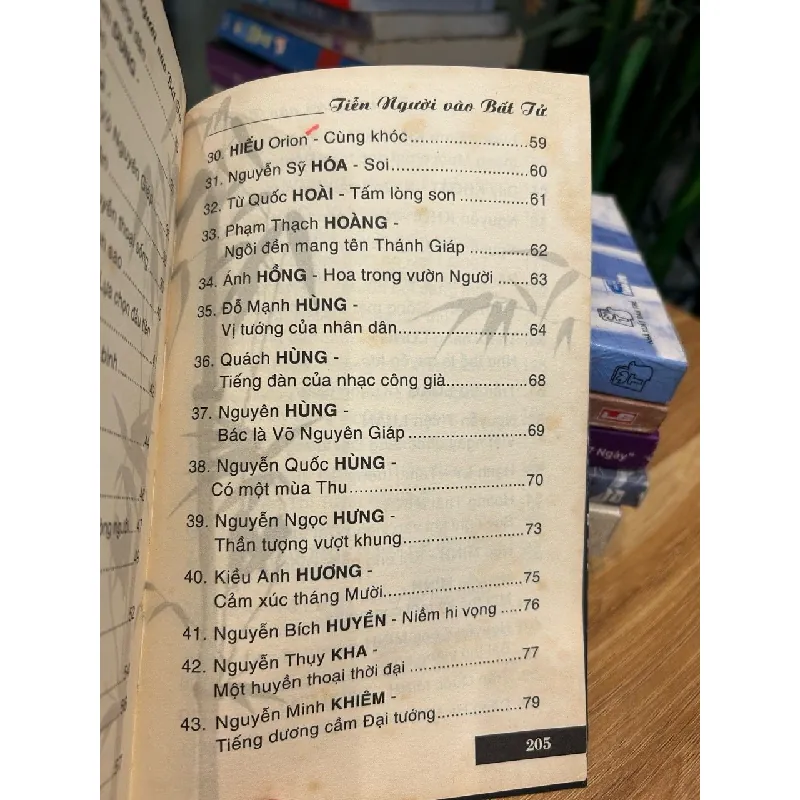 Tiễn Người vào Bất Tử
30. HIẾU Orion - Cùng khóc ..................... 59
31. Nguyễn Sỹ HÓA - Soi ......................... 60
32. Từ Quốc HOÀI - Tấm lòng son ............. 61
33. Phạm Thạch HOÀNG -
Ngôi đền mang tên Thánh Giáp ............ 62
34. Ánh HỒNG - Hoa trong vườn Người ..... 63
35. Đỗ Mạnh HÙNG -
Vị tướng của nhân dân....................... 64
36. Quách HÙNG -
Tiếng đàn của nhạc công già................ 68
37. Nguyên HÙNG -
Bác là Võ Nguyên Giáp ...................... 69
38. Nguyễn Quốc HÙNG -
Có một mùa Thu .............................. 70
39. Nguyễn Ngọc HƯNG -
Thần tượng vượt khung...................... 73
40. Kiều Anh HƯƠNG -
Cảm xúc tháng Mười......................... 75
41. Nguyễn Bích HUYỀN - Niềm hi vọng ..... 76
42. Nguyễn Thụy KHA -
Một huyền thoại thời đại .................... 77
43. Nguyễn Minh KHIÊM -
Tiếng dương cầm Đại tướng................. 79
205